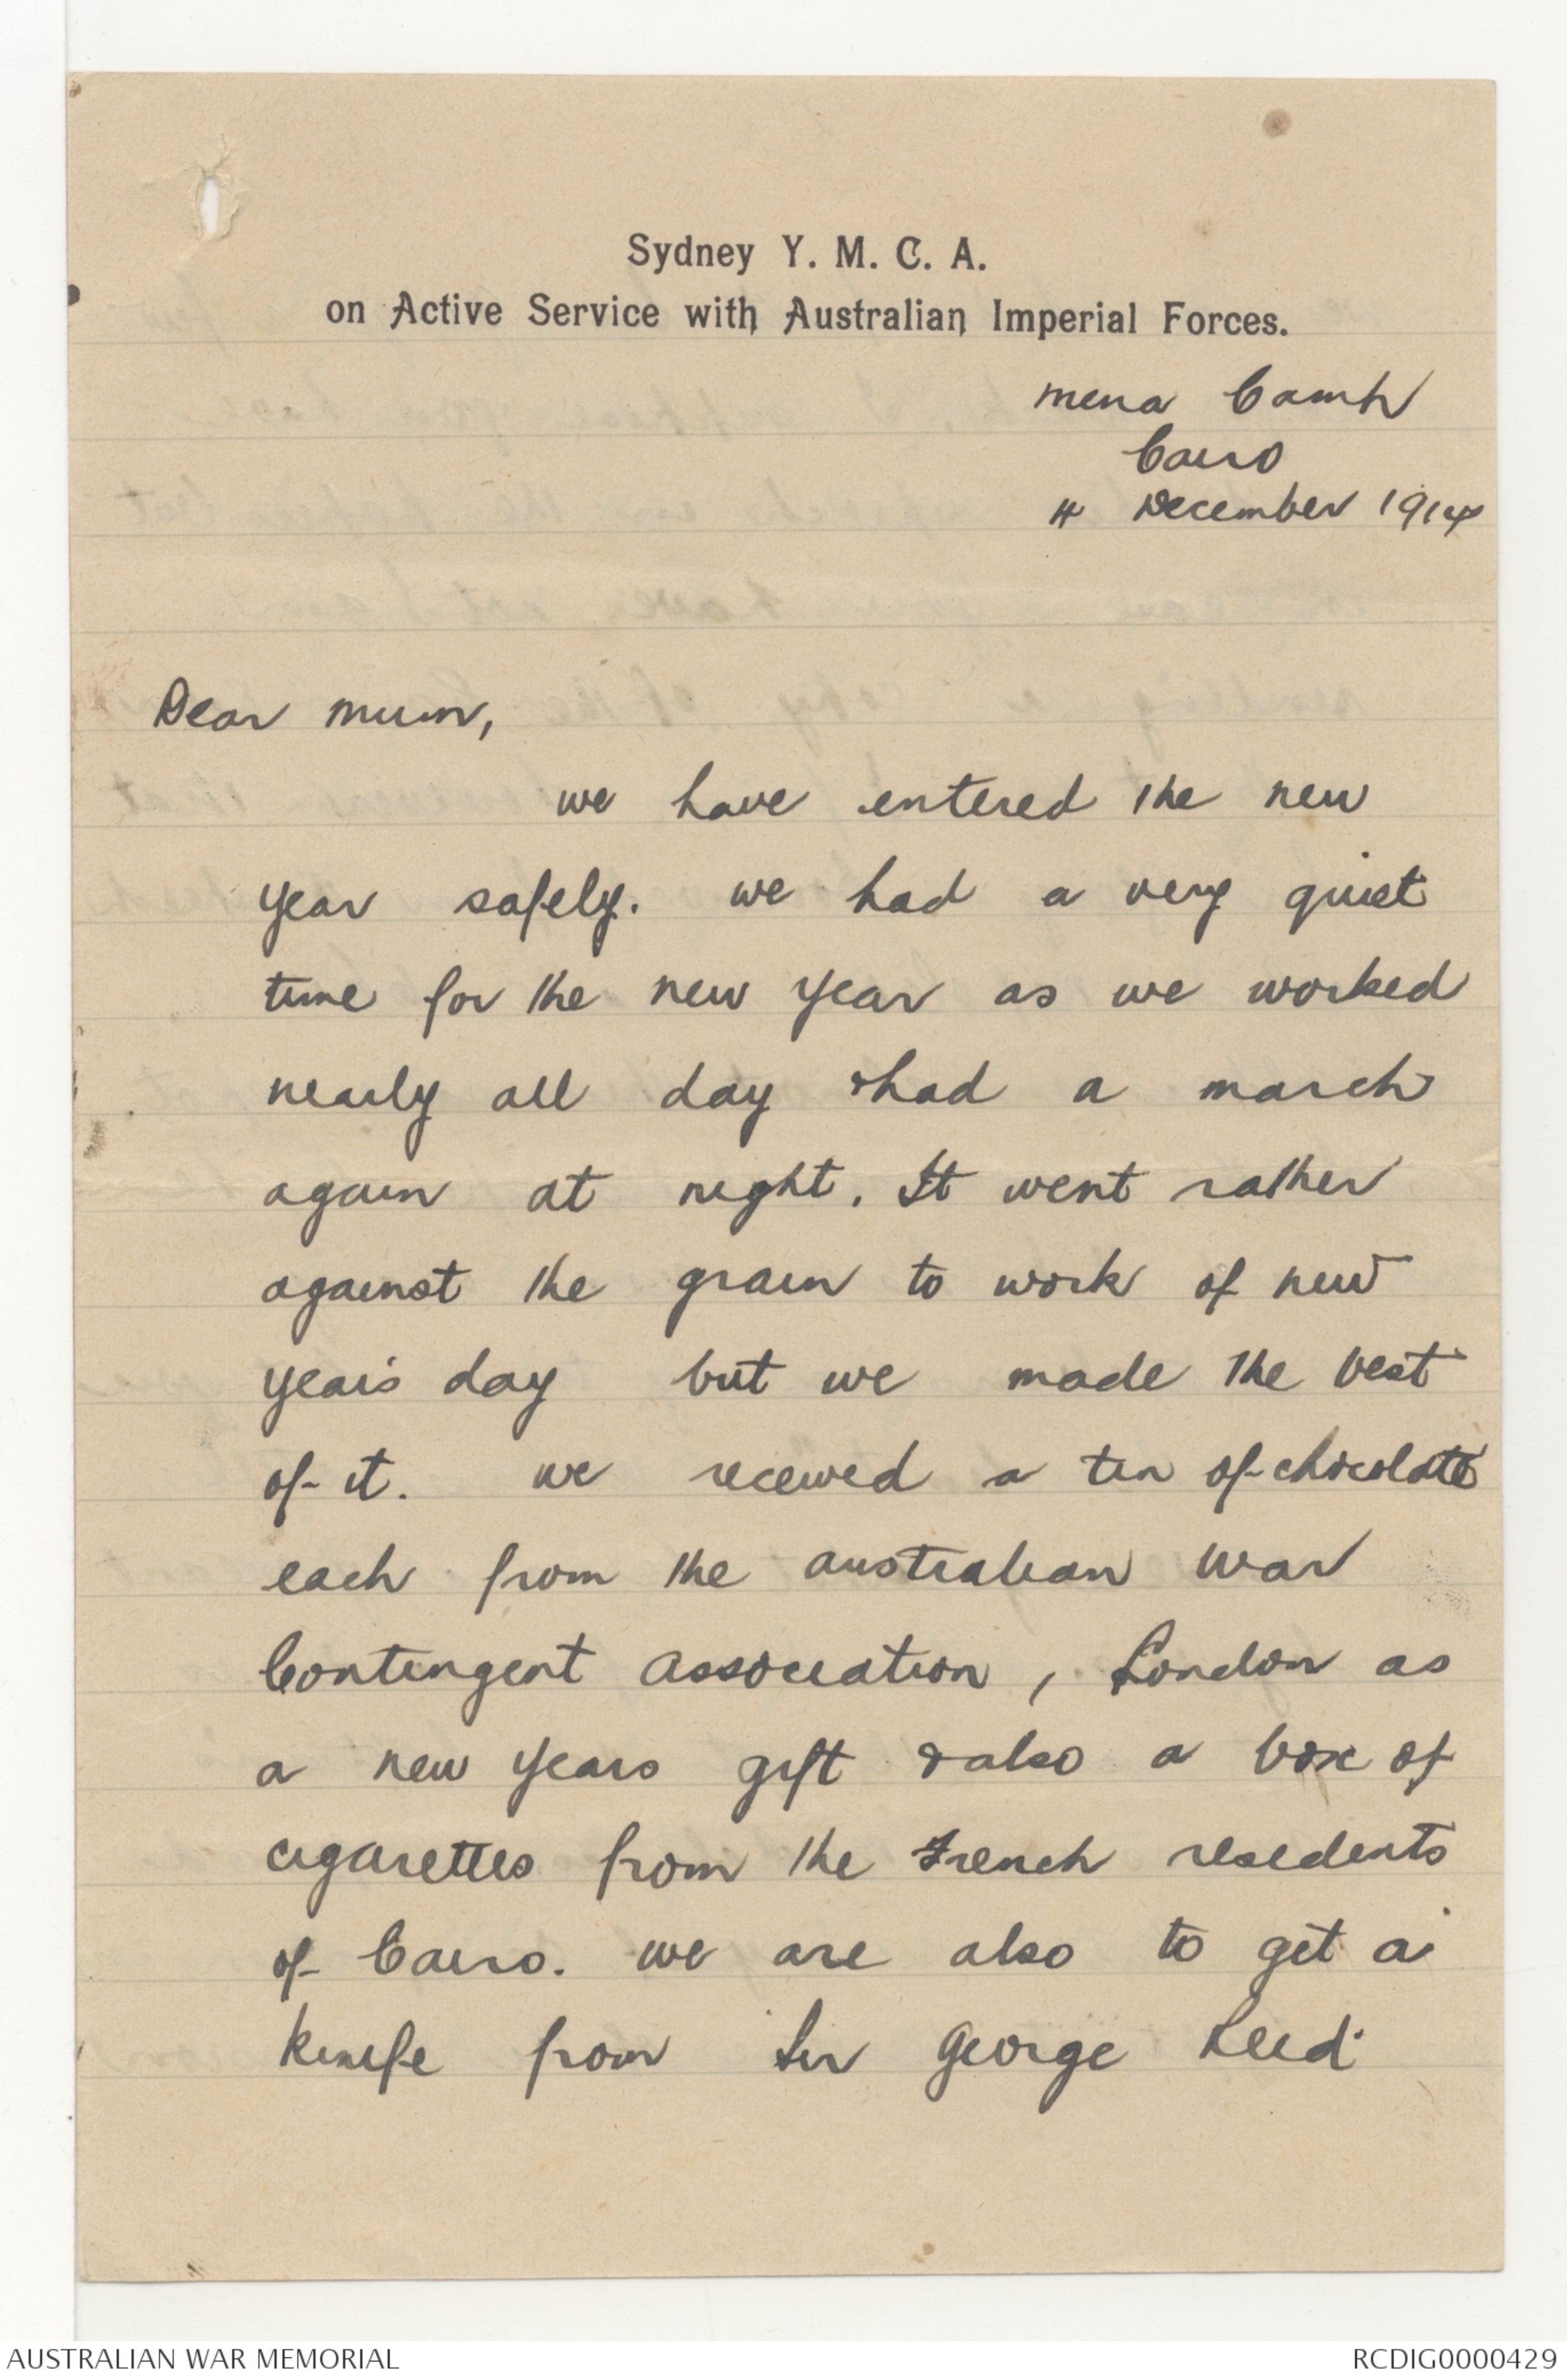 Sydney Y. M. C. A.
on Active Service with Australian Imperial Forces.
Mena Camp
Cairo
4 December 1914
Dear Mum,
we have entered the new
year safely. we had a very quiet
time for the new year as we worked
nearly all day & had a march
again at night. It went rather
against the grain to work of new
year's day but we made the best
of it. we received a tin of chocolate
each from the australian war
Contingent Association, London as
a new years gift & also a box of
cigarettes from the French residents
of Cairo. we are also to get a
knife from Sir George Reid
AUSTRALIAN WAR MEMORIAL
RCDIG0000429